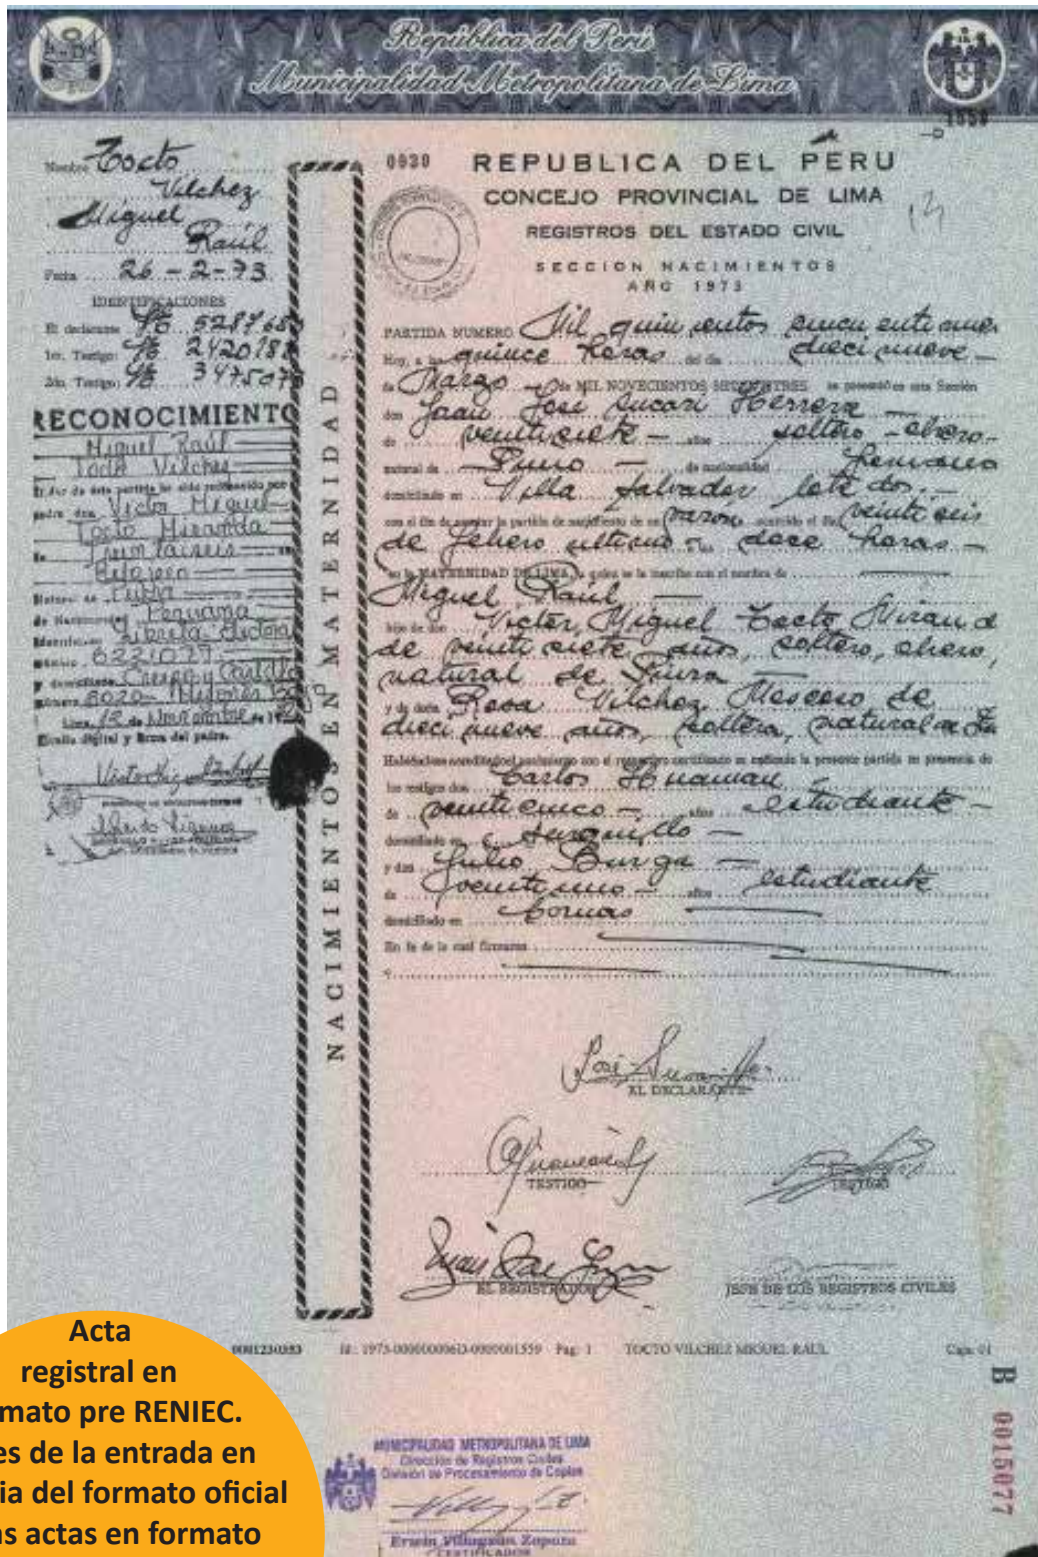 República del Perú
Municipalidad Metropolitana de Lima
1559
Nombre Tocto
Vilchez
Miguel
Raúl
Fecha 26-2-73
IDENTIFICACIONES
El declarante
1er. Testigo:
2do. Testigo:
RECONOCIMIENTO
Miguel Raúl
Tocto Vilchez
El de esta partida ha sido reconocido por
padre don Victor Miguel
Tocto Miranda
de Treintaiseis
Relojero
Natural de Piura
de Nacionalidad Peruana
Libreta Electoral
número 6221027
y domiciliado Crespo y Castillo
número 3020- Mirones Bajo
Lima, 12 de Noviembre de
Huella digital y firma del padre.
NACIMIENTOS EN MATERNIDAD
0030
REPUBLICA DEL PERU
CONCEJO PROVINCIAL DE LIMA
REGISTROS DEL ESTADO CIVIL
SECCION NACIMIENTOS
AÑO 1973
PARTIDA NUMERO Mil quinientos cincuentinueve
Hoy, a las quince horas del día diecinueve
de Marzo de MIL NOVECIENTOS SETENTITRES se presentó en esta Sección
don Juan José Sucari Herrera
de veintisiete años soltero - obrero
natural de Puno de nacionalidad peruano
domiciliado en Villa Salvador lote dos,
con el fin de asentar la partida de nacimiento de un varón ocurrido el día veintiseis
de febrero ultimo a las doce horas
en la MATERNIDAD DE LIMA, a quien se le inscribe con el nombre de
Miguel Raúl
hijo de don Victor Miguel Tocto Mirand
de veintisiete años, soltero, obrero,
natural de Piura
y de doña Rosa Vilchez de
diecinueve años, soltera, natural de
Habiéndose acreditado el nacimiento con el respectivo certificado se extiende la presente partida en presencia de
los testigos don Carlos Huaman
de veinticinco años estudiante
domiciliado en Surquillo
y don Julio Burga
de veintiuno años estudiante
domiciliado en Comas
En fe de lo cual firmamos
EL DECLARANTE
TESTIGO
TESTIGO
EL REGISTRADOR
JEFE DE LOS REGISTROS CIVILES
Id.: 1973-000000006D-0000001559 Pag: 1 TOCTO VILCHEZ MIGUEL RAUL Caja: 01
B 0015077
MUNICIPALIDAD METROPOLITANA DE LIMA
Dirección de Registros Civiles
División de Procesamiento de Copias
CERTIFICADOR
Acta
registral en
mato pre RENIEC.
es de la entrada en
ia del formato oficial
as actas en formato